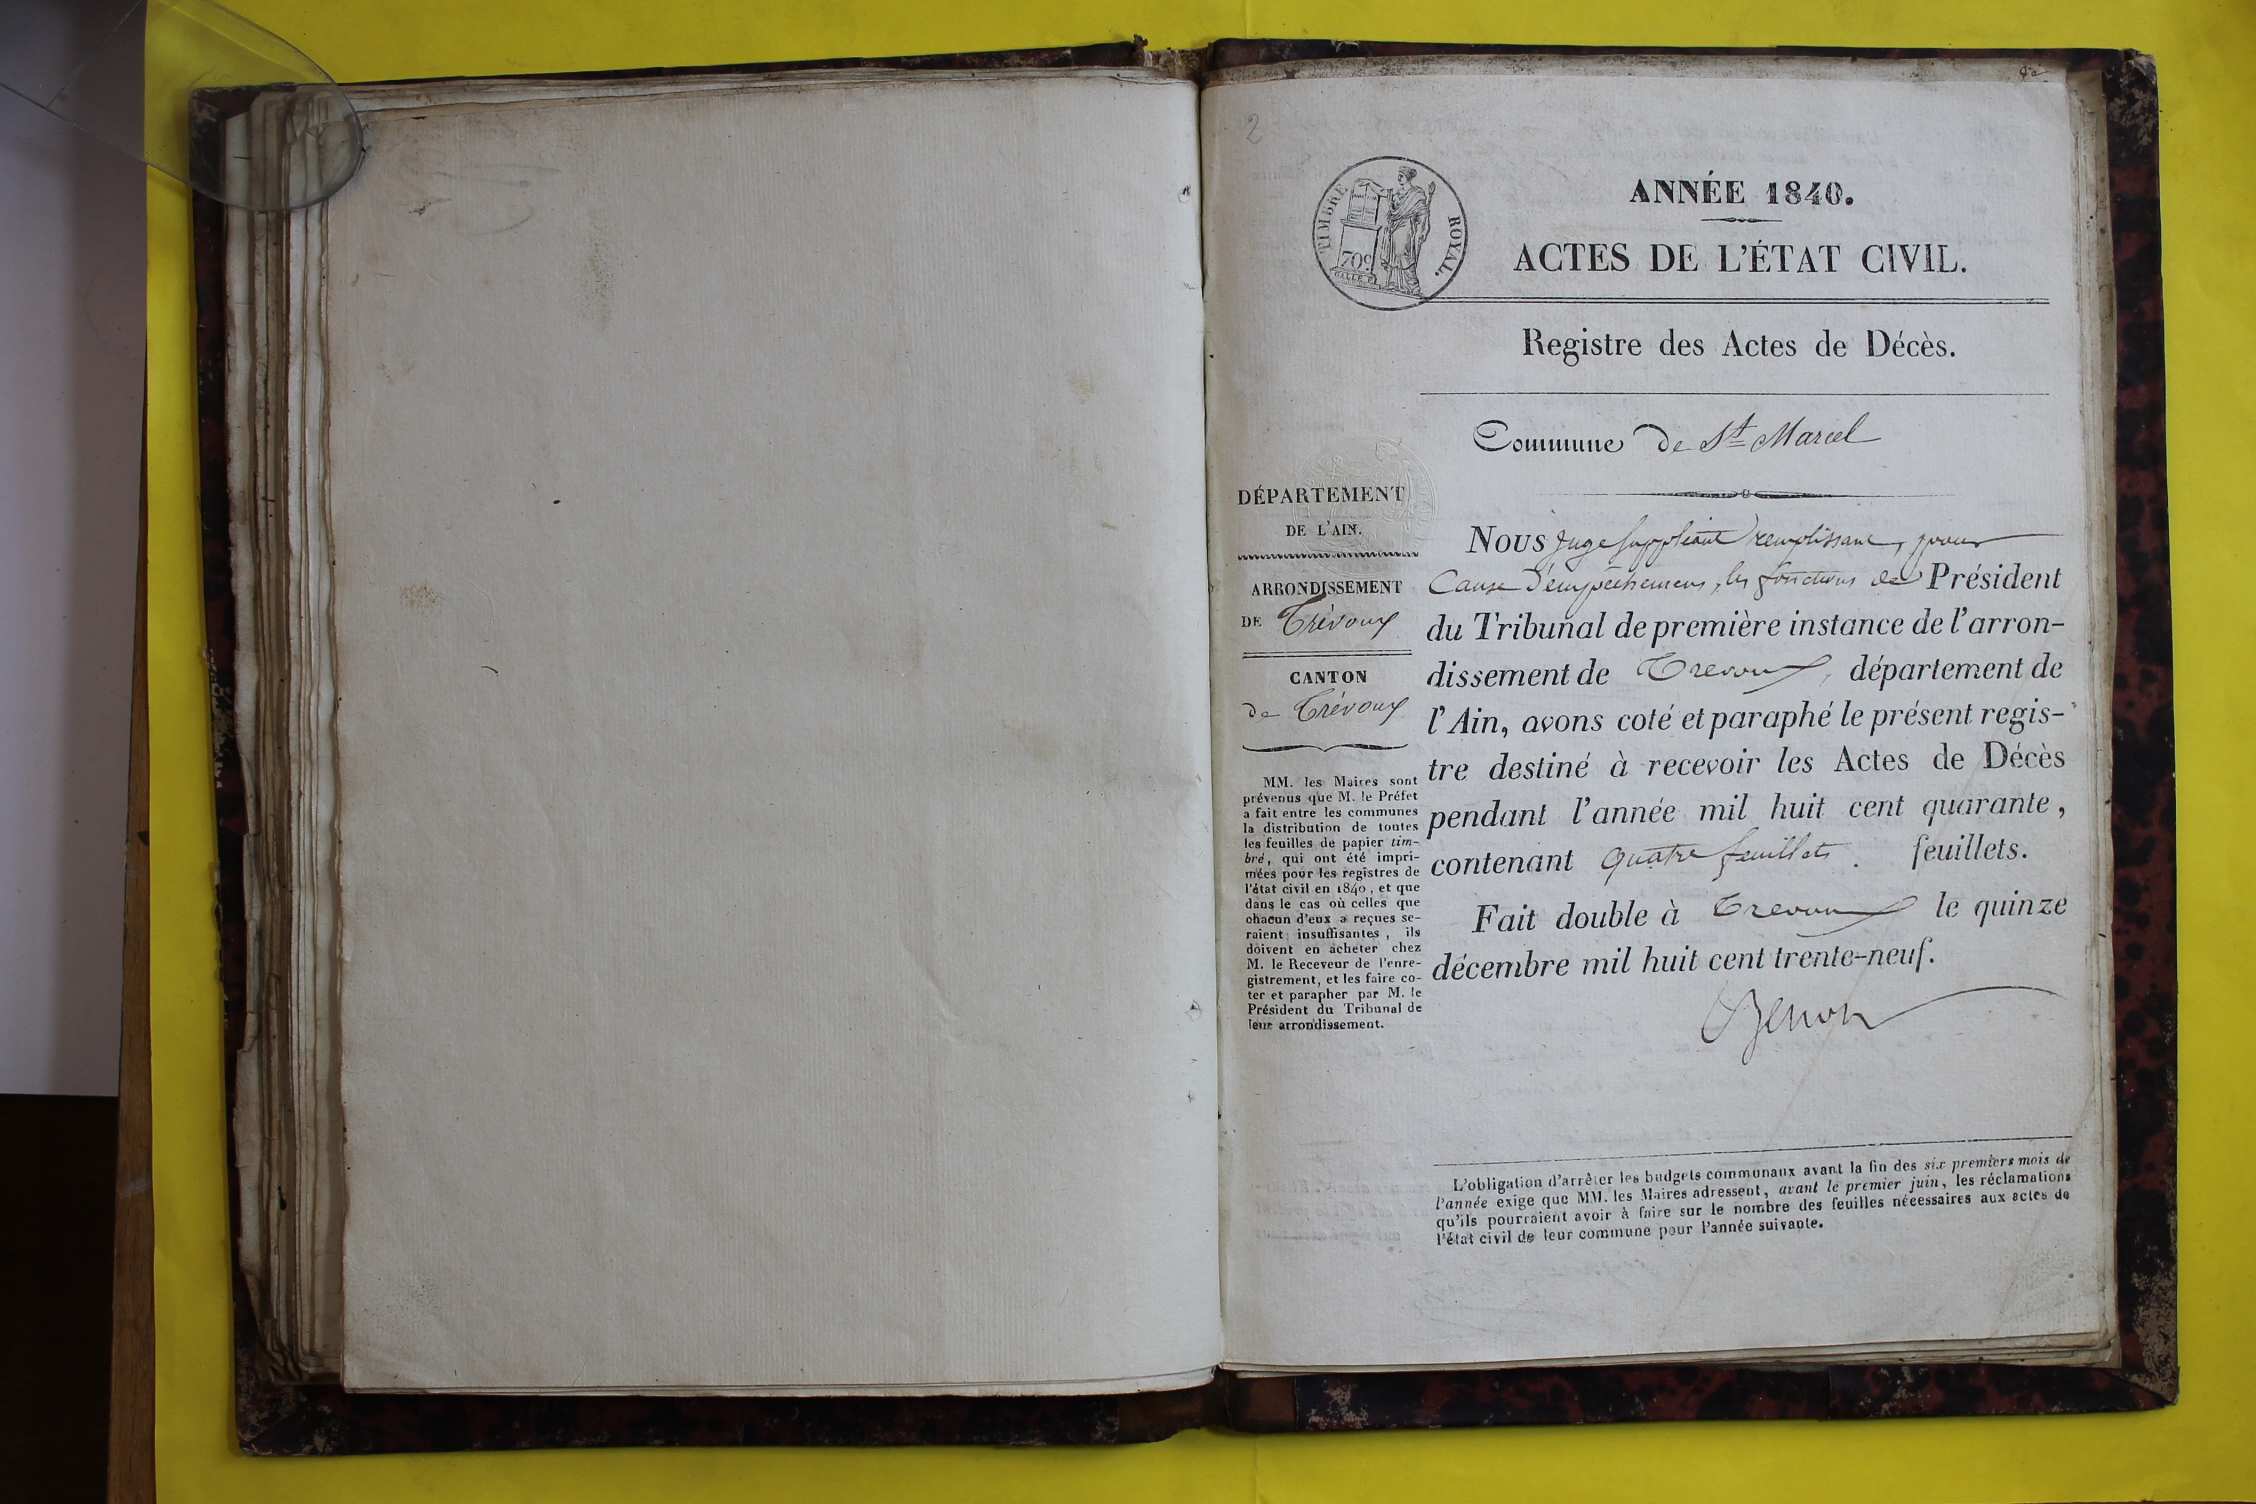 2
TIMBRE ROYAL.
70c
ANNÉE 1840.
ACTES DE L'ÉTAT CIVIL.
Registre des Actes de Décès.
Commune de St Marcel
DÉPARTEMENT
DE L'AIN.
ARRONDISSEMENT
DE Trévoux
CANTON
de Trévoux
MM. les Maires sont
prévenus que M. le Préfet
a fait entre les communes
la distribution de toutes
les feuilles de papier tim-
bré, qui ont été impri-
mées pour les registres de
l'état civil en 1840, et que
dans le cas où celles que
chacun d'eux a reçues se-
raient insuffisantes, ils
doivent en acheter chez
M. le Receveur de l'enre-
gistrement, et les faire co-
ter et parapher par M. le
Président du Tribunal de
leur arrondissement.
Nous Juge suppléant remplissant, pour
Cause d'empêchement, les fonctions de Président
du Tribunal de première instance de l'arron-
dissement de Trevoux, département de
l'Ain, avons coté et paraphé le présent regis-
tre destiné à recevoir les Actes de Décès
pendant l'année mil huit cent quarante,
contenant quatre feuillets. feuillets.
Fait double à Trevoux le quinze
décembre mil huit cent trente-neuf.
L'obligation d'arrêter les budgets communaux avant la fin des six premiers mois de
l'année exige que MM. les Maires adressent, avant le premier juin, les réclamations
qu'ils pourraient avoir à faire sur le nombre des feuilles nécessaires aux actes de
l'état civil de leur commune pour l'année suivante.